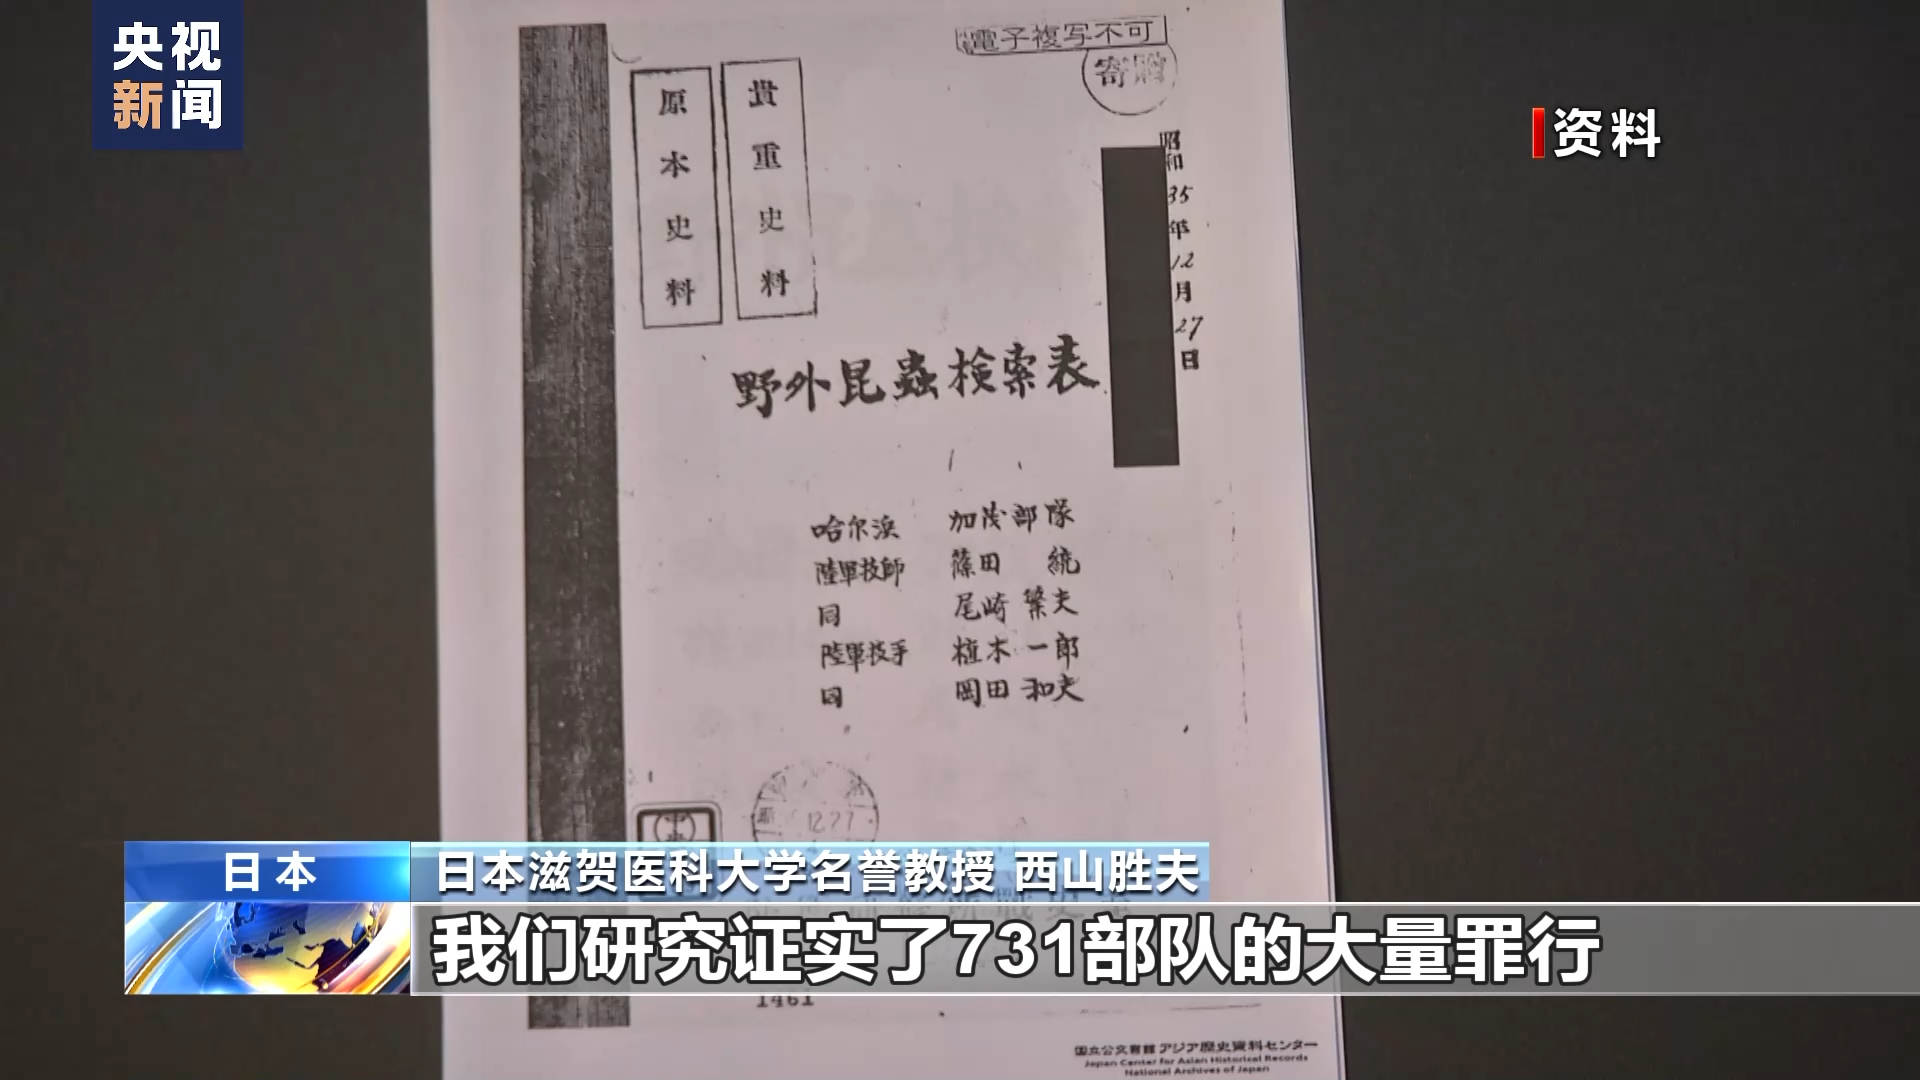 央视
新闻
资料
電子複写不可
寄贈
貴重史料
原本史料
昭和35年12月27日
野外昆蟲検索表
哈尔浜 加茂部隊
陸軍技師 篠田 統
同 尾崎繁夫
陸軍技手 植木一郎
同 岡田和夫
12.27
日本
日本滋贺医科大学名誉教授 西山胜夫
我们研究证实了731部队的大量罪行
1461
国立公文書館 アジア歴史資料センター
Japan Center for Asian Historical Records
National Archives of Japan